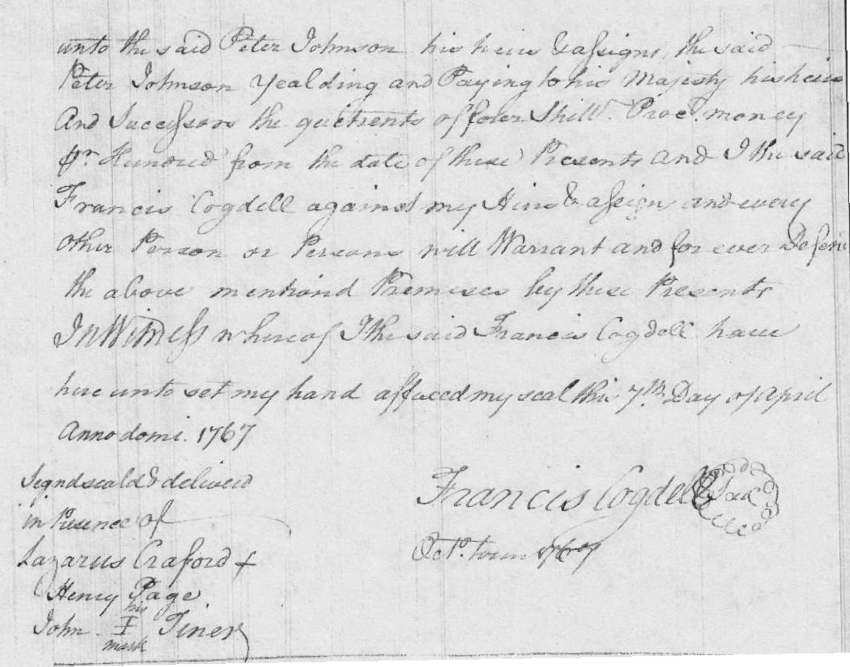 unto the said Peter Johnson his heirs & assigns, the said
Peter Johnson Yealding and Paying to his Majesty his heirs
And Sucessors the quitrents of foler Shill. Proc. money
pr. Hundred from the date of these Presents and I the said
Francis Cogdell against my Hirs & assigns and every
other Person or Persons will Warrant and for ever Defend
the above mentiond Premises by these Presents
In Witness whereof I the said Francis Cogdell have
here unto set my hand affixed my seal this 7th Day of April
Anno domi. 1767
Signd seald & deliverd
in Presence of
Francis Cogdell Seal
Lazarus Craford +
Octr. term 1767
Henry Page
his
John I Tiner
mark